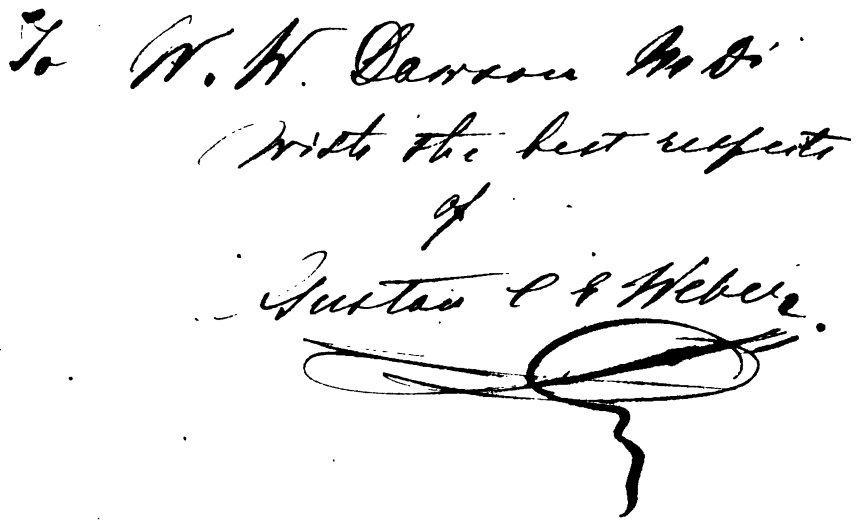 To W. W. Dawson M.D.
with the best respects
of
Gustav C E Weber.